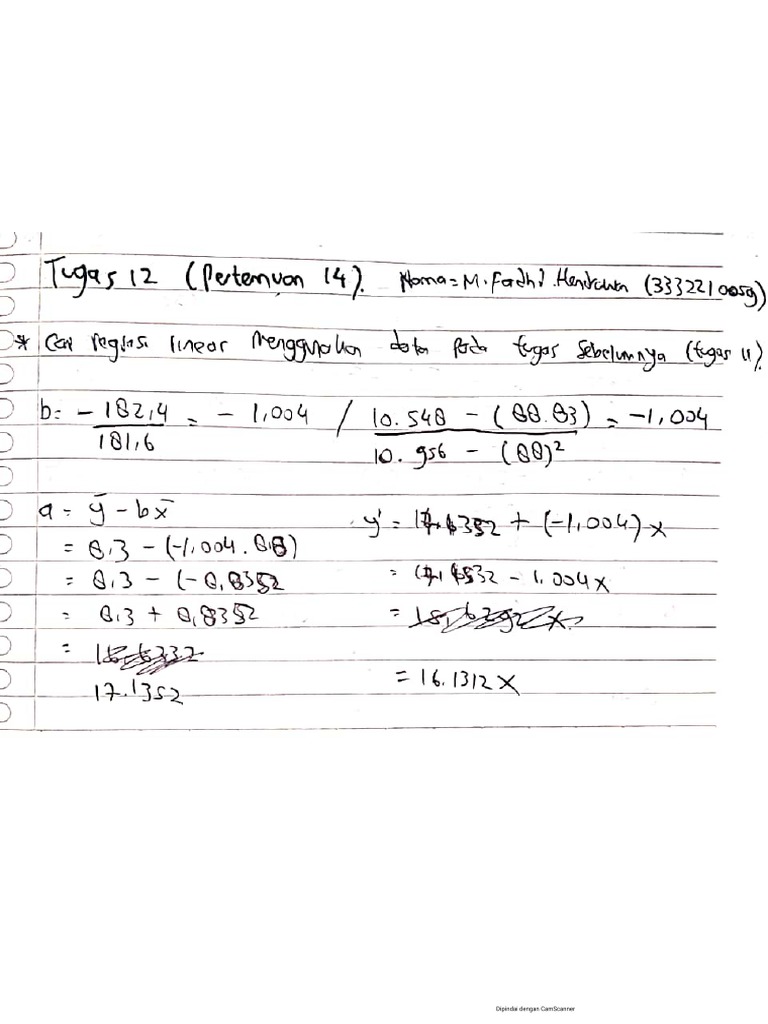 Tugas 12 (Pertemuan 14). Nama = M. Fadhil Hendrawan (3332210059)
* Cari regresi linear menggunakan data pada tugas sebelumnya (tugas 11).
b = - 182,4 / 181,6 = - 1,004 / 10.548 - (88.83) / 10.956 - (88)² = -1,004
a = ȳ - bx̄
= 8,3 - (-1,004 . 8,8)
= 8,3 - (-8,8352
= 8,3 + 8,8352
=
17.1352
y' = + (-1,004) x
= - 1.004x
=
= 16.1312 x
Dipindai dengan CamScanner